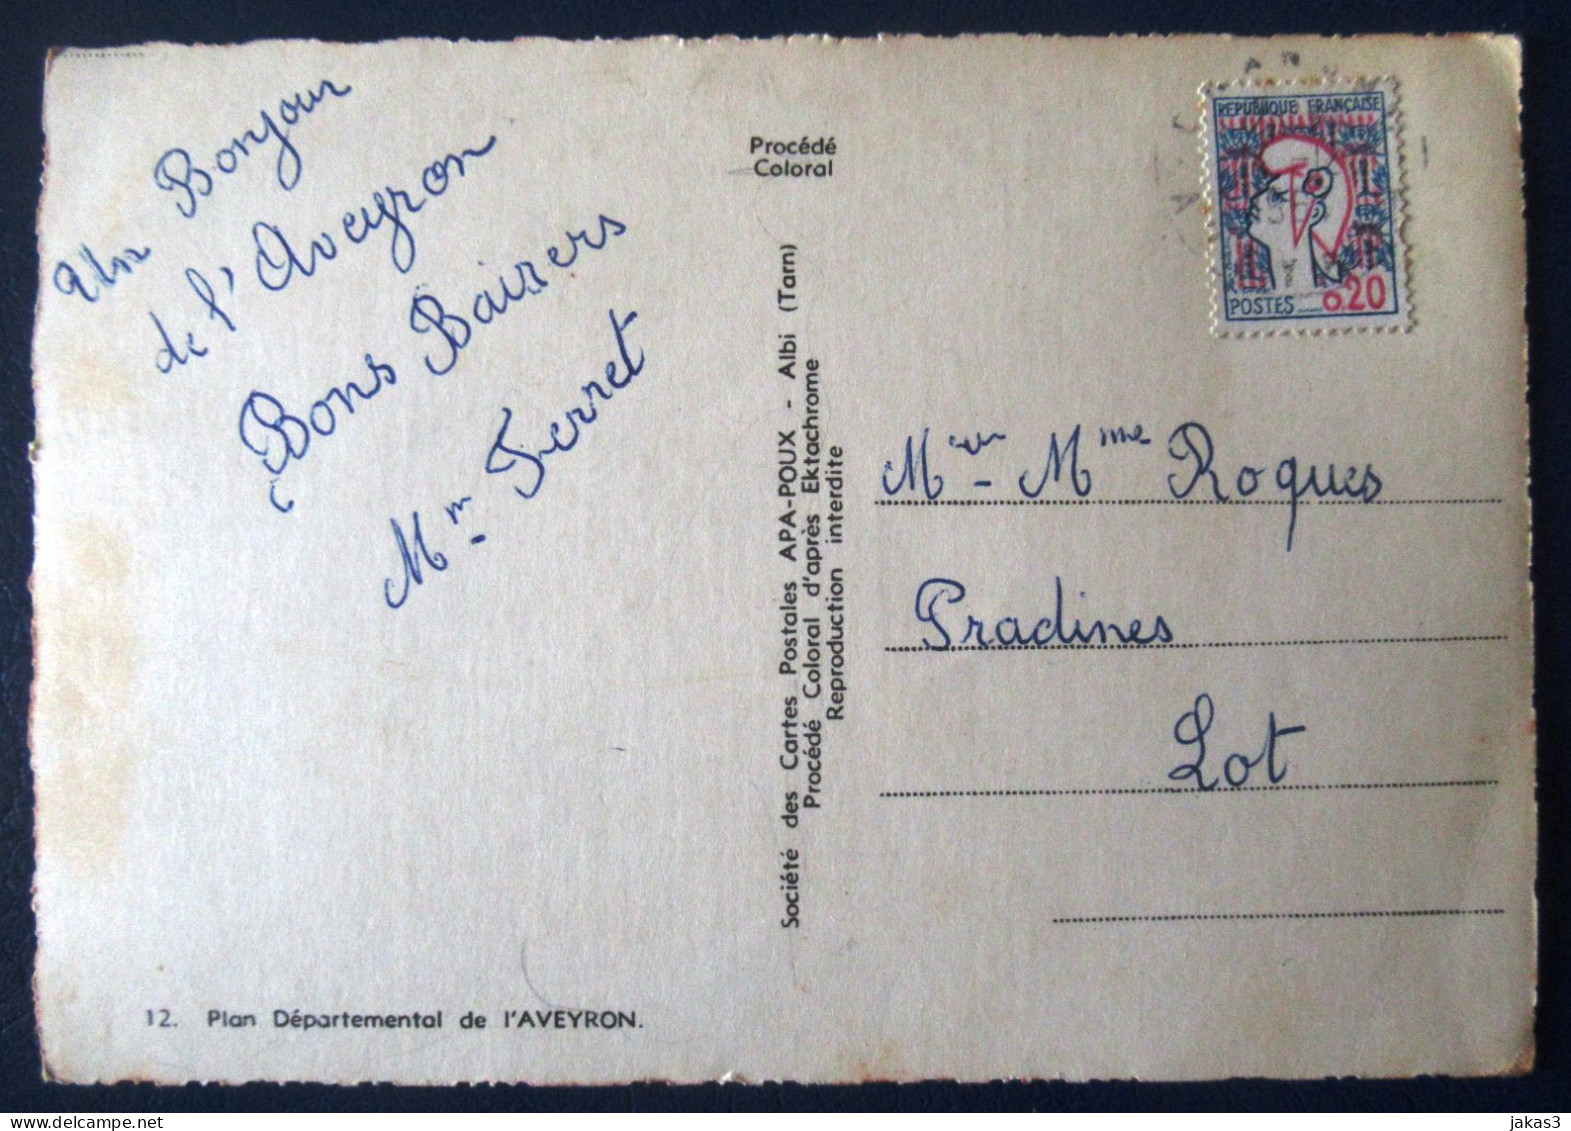 Un Bonjour
de l'Aveyron
Bons Baisers
Mm Ferret
Procédé
Coloral
Société des Cartes Postales APA-POUX - Albi (Tarn)
Procédé Coloral d'après Ektachrome
Reproduction interdite
REPUBLIQUE FRANÇAISE
POSTES 0,20
Meur - Mme Roques
Pradines
Lot
12. Plan Départemental de l'AVEYRON.
jakas3